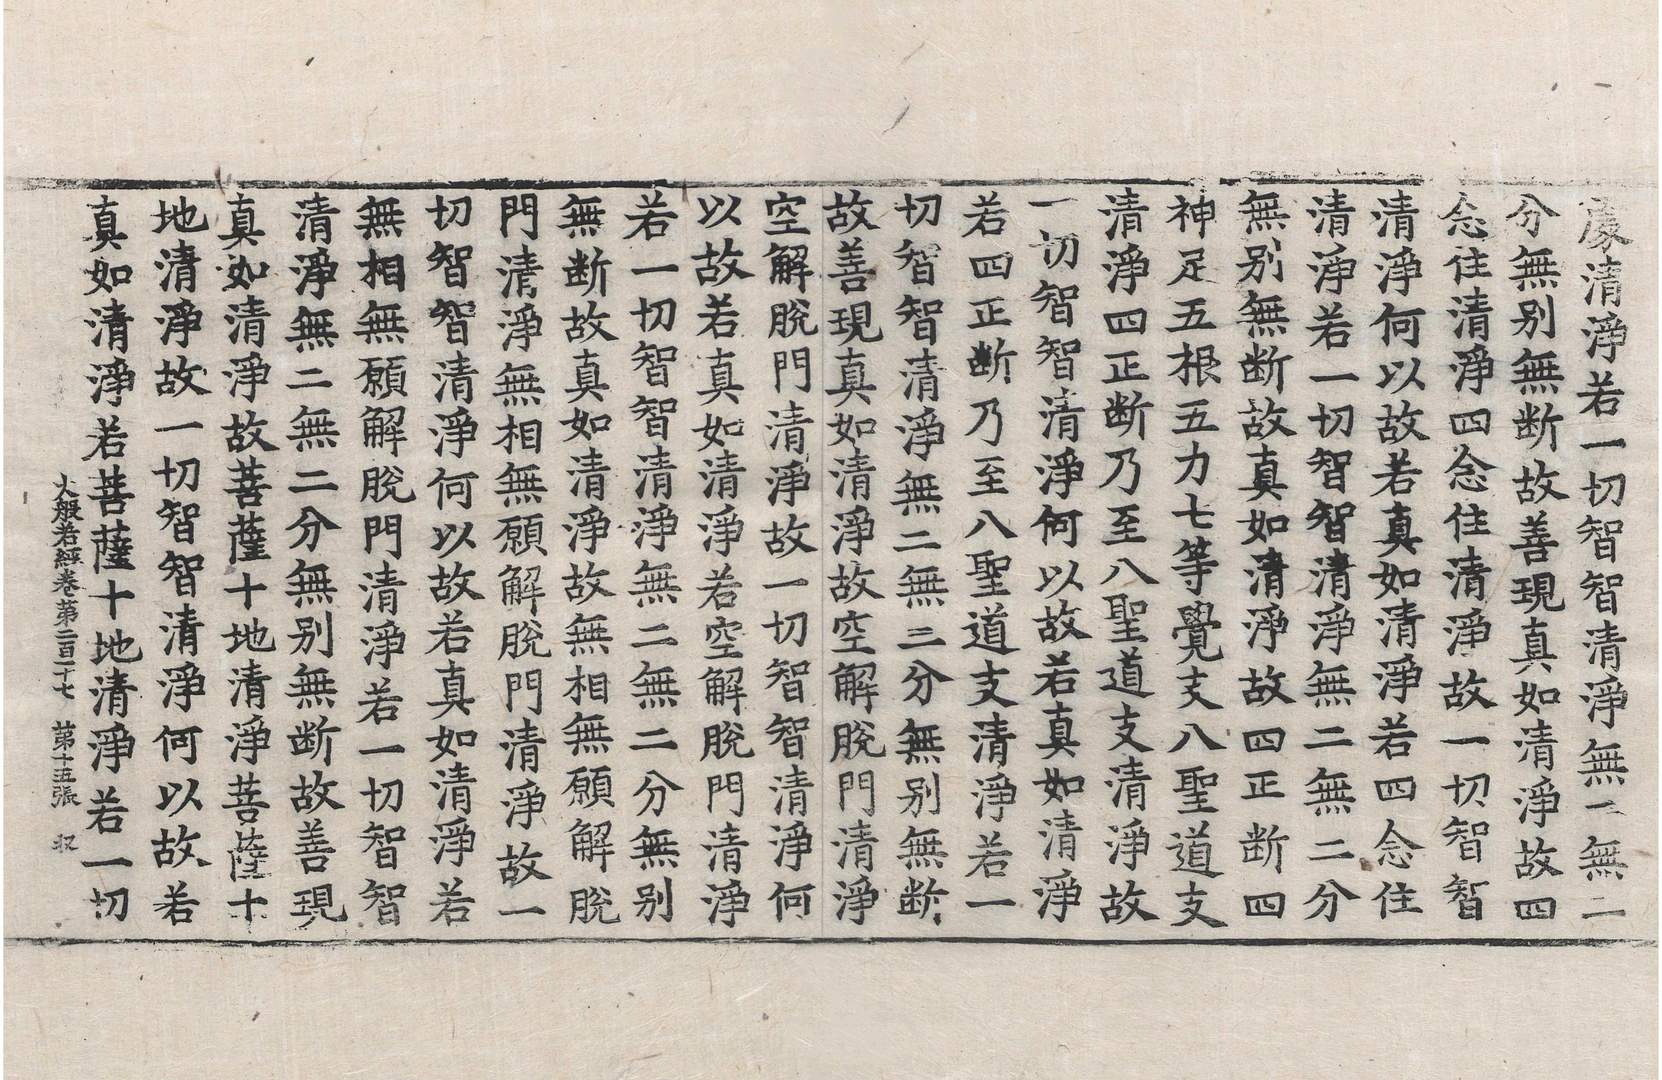 處清淨若一切智智清淨無二無二
分無別無斷故善現真如清淨故四
念住清淨四念住清淨故一切智智
清淨何以故若真如清淨若四念住
清淨若一切智智清淨無二無二分
無別無斷故真如清淨故四正斷四
神足五根五力七等覺支八聖道支
清淨四正斷乃至八聖道支清淨故
一切智智清淨何以故若真如清淨
若四正斷乃至八聖道支清淨若一
切智智清淨無二無二分無別無斷
故善現真如清淨故空解脫門清淨
空解脫門清淨故一切智智清淨何
以故若真如清淨若空解脫門清淨
若一切智智清淨無二無二分無別
無斷故真如清淨故無相無願解脫
門清淨無相無願解脫門清淨故一
切智智清淨何以故若真如清淨若
無相無願解脫門清淨若一切智智
清淨無二無二分無別無斷故善現
真如清淨故菩薩十地清淨菩薩十
地清淨故一切智智清淨何以故若
真如清淨若菩薩十地清淨若一切
大般若經卷第二百一十七 第十五張 収